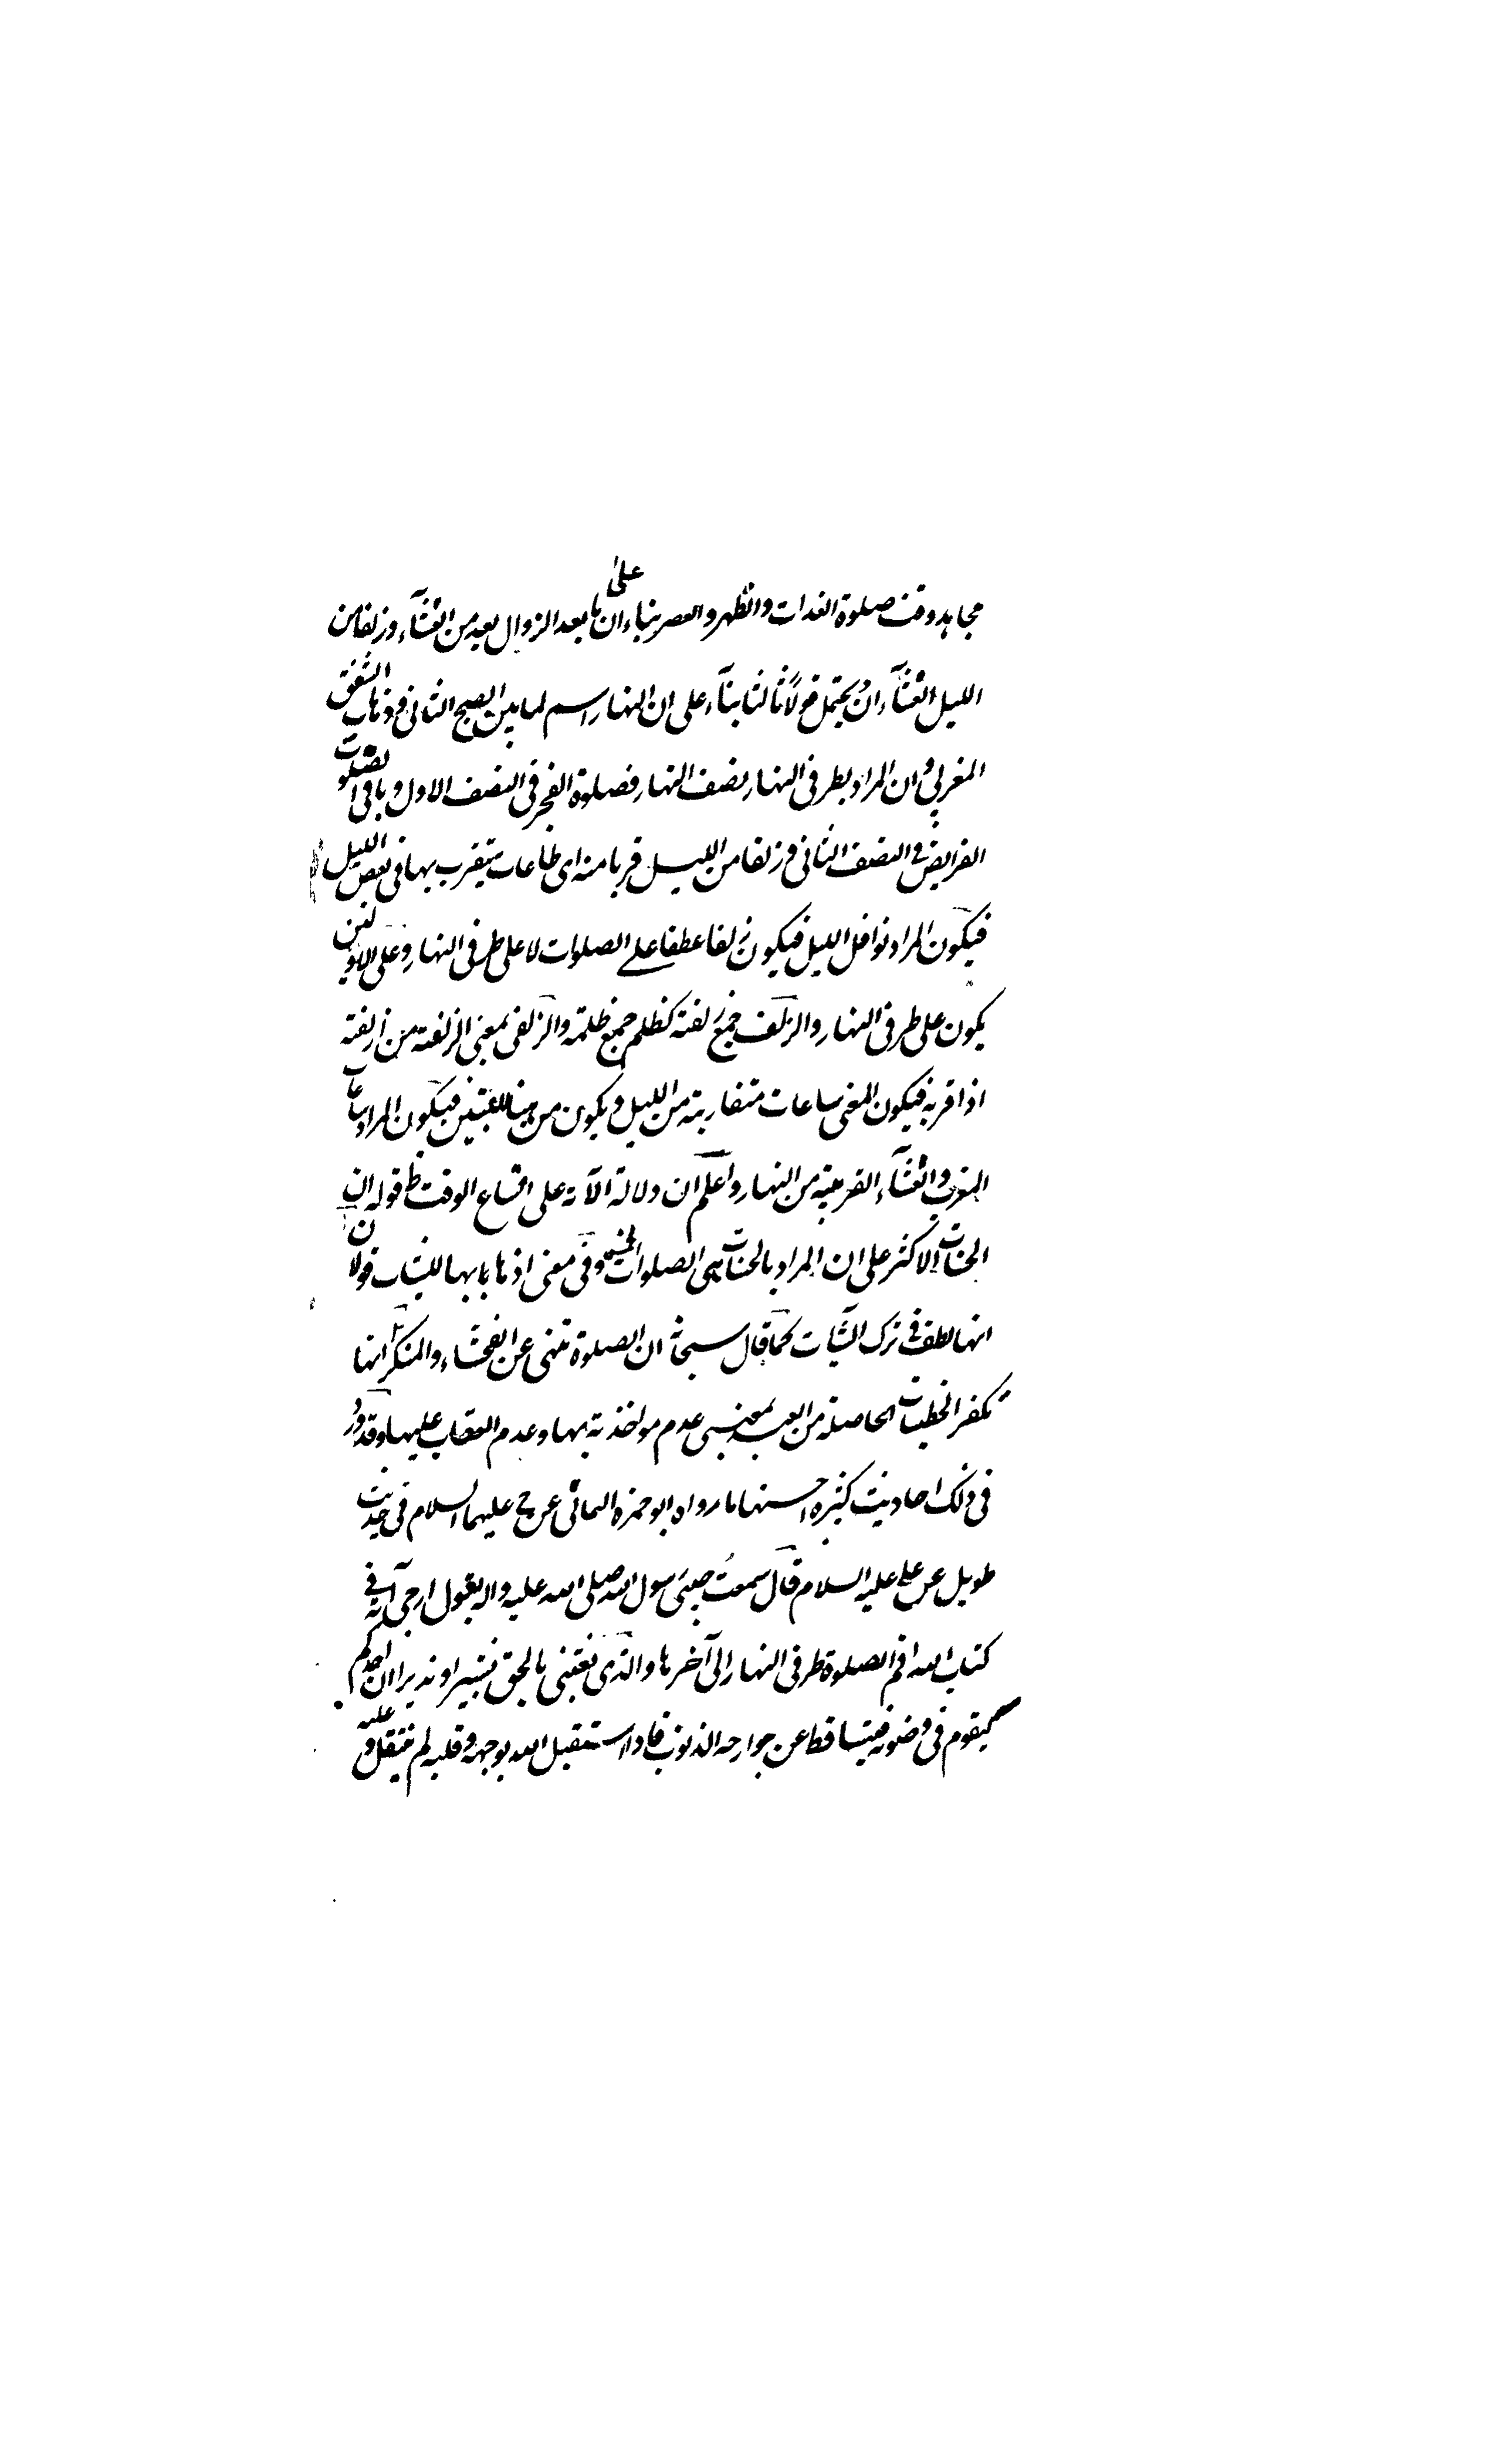 مجاهد وقت صلوة الغدات والظهر والعصر بناء على ان ما بعد الزوال بعد من العشآء وزلفا من
الليل العشآء ان يحتمل قولا ثالثا بنآء على ان النهار اسم لما بين الصبح الثانى وذهاب الشفق
المغربى وان المراد بطرفى النهار نصف النهار فصلوة الفجر فى النصف الاول وباقى الصلوت
الفرايض فى النصف الثانى وزلفا من الليل قربا منه اى طاعات يتقرب بها فى بعض الليل
فيكون المراد نوافل الليل فيكون زلفا عطفا على الصلوات لا على طرفى النهار وعلى الاولين
يكون على طرفى النهار والزلف جمع زلفة كظلم جمع ظلمة والزلفى بمعنى الزلفة من ازلفته
اذا قربه فيكون المعنى ساعات متقاربة من الليل ويكون من مبينا للتبيين فيكون المراد ساعات
المغرب والعشآء القريبة من النهار واعلم ان دلالة الآية على اتساع الوقت ظ قوله ان
الحسنات الاكثر على ان المراد بالحسنات هى الصلوات الخمس وفى معنى اذهابها للسيئات قولان
انها لطف فى ترك السيّات كما قال سبحانه ان الصلوة تنهى عن الفحشاء والمنكر انها
تكفر الخطيئات الحاصلة من العبد بمعنى عدم مواخذته بها وعدم العقاب عليها وقد ورد
فى ذلك احاديث كثيرة احسنها ما رواه ابو حمزة الثمالى عن ح عليهما السلام فى حديث
طويل عن على عليه السلام قال سمعت حبيبى رسول الله صلى الله عليه واله يقول ارجى آية فى
كتاب الله اقم الصلوة طرفى النهار الى آخرها والذى بعثنى بالحق بشيرا ونذيرا ان احدكم
ليقوم فى وضوئه فيتساقط عن جوارحه الذنوب فاذا استقبل الله بوجهه وقلبه لم ينفتل و عليه